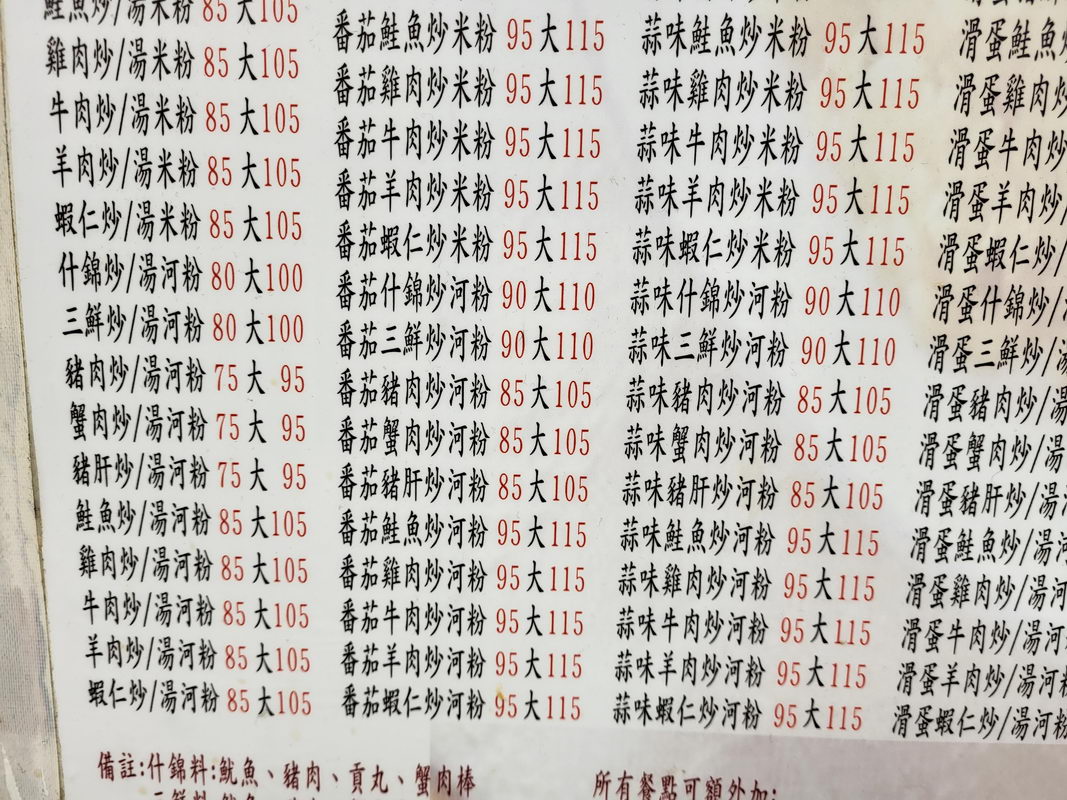 鮭魚炒/湯米粉 85 大105
雞肉炒/湯米粉 85 大105
牛肉炒/湯米粉 85 大105
羊肉炒/湯米粉 85 大105
蝦仁炒/湯米粉 85 大105
什錦炒/湯河粉 80 大100
三鮮炒/湯河粉 80 大100
豬肉炒/湯河粉 75 大 95
蟹肉炒/湯河粉 75 大 95
豬肝炒/湯河粉 75 大 95
鮭魚炒/湯河粉 85 大105
雞肉炒/湯河粉 85 大105
牛肉炒/湯河粉 85 大105
羊肉炒/湯河粉 85 大105
蝦仁炒/湯河粉 85 大105
番茄鮭魚炒米粉 95 大115
番茄雞肉炒米粉 95 大115
番茄牛肉炒米粉 95 大115
番茄羊肉炒米粉 95 大115
番茄蝦仁炒米粉 95 大115
番茄什錦炒河粉 90 大110
番茄三鮮炒河粉 90 大110
番茄豬肉炒河粉 85 大105
番茄蟹肉炒河粉 85 大105
番茄豬肝炒河粉 85 大105
番茄鮭魚炒河粉 95 大115
番茄雞肉炒河粉 95 大115
番茄牛肉炒河粉 95 大115
番茄羊肉炒河粉 95 大115
番茄蝦仁炒河粉 95 大115
蒜味鮭魚炒米粉 95 大115
蒜味雞肉炒米粉 95 大115
蒜味牛肉炒米粉 95 大115
蒜味羊肉炒米粉 95 大115
蒜味蝦仁炒米粉 95 大115
蒜味什錦炒河粉 90 大110
蒜味三鮮炒河粉 90 大110
蒜味豬肉炒河粉 85 大105
蒜味蟹肉炒河粉 85 大105
蒜味豬肝炒河粉 85 大105
蒜味鮭魚炒河粉 95 大115
蒜味雞肉炒河粉 95 大115
蒜味牛肉炒河粉 95 大115
蒜味羊肉炒河粉 95 大115
蒜味蝦仁炒河粉 95 大115
滑蛋鮭魚
滑蛋雞肉
滑蛋牛肉
滑蛋羊肉炒/
滑蛋蝦仁炒/
滑蛋什錦炒/
滑蛋三鮮炒/
滑蛋豬肉炒/湯
滑蛋蟹肉炒/湯
滑蛋豬肝炒/湯
滑蛋鮭魚炒/湯河
滑蛋雞肉炒/湯河
滑蛋牛肉炒/湯河
滑蛋羊肉炒/湯河粉
滑蛋蝦仁炒/湯河粉
備註:什錦料:魷魚、豬肉、貢丸、蟹肉棒
所有餐點可額外加: